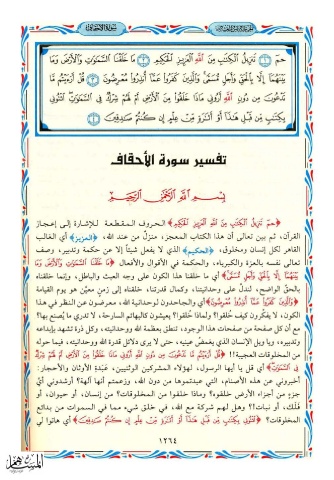 سورة الأحقاف
حمٓ ۝١ تَنزِيلُ ٱلْكِتَٰبِ مِنَ ٱللَّهِ ٱلْعَزِيزِ ٱلْحَكِيمِ ۝٢ مَا خَلَقْنَا ٱلسَّمَٰوَٰتِ وَٱلْأَرْضَ وَمَا
بَيْنَهُمَآ إِلَّا بِٱلْحَقِّ وَأَجَلٍ مُّسَمًّى وَٱلَّذِينَ كَفَرُوا۟ عَمَّآ أُنذِرُوا۟ مُعْرِضُونَ ۝٣ قُلْ أَرَءَيْتُم مَّا
تَدْعُونَ مِن دُونِ ٱللَّهِ أَرُونِى مَاذَا خَلَقُوا۟ مِنَ ٱلْأَرْضِ أَمْ لَهُمْ شِرْكٌ فِى ٱلسَّمَٰوَٰتِ ٱئْتُونِى
بِكِتَٰبٍ مِّن قَبْلِ هَٰذَآ أَوْ أَثَٰرَةٍ مِّنْ عِلْمٍ إِن كُنتُمْ صَٰدِقِينَ ۝٤
تفسير سورة الأحقاف
بسم الله الرحمن الرحيم
﴿حمٓ تَنزِيلُ ٱلْكِتَٰبِ مِنَ ٱللَّهِ ٱلْعَزِيزِ ٱلْحَكِيمِ﴾ الحروف المقطعة للإشارة إلى إعجاز
القرآن، ثم بين تعالى أن هذا الكتاب المعجز، منزل من عند الله، ﴿العزيز﴾ أي الغالب
القاهر لكل إنسان ومخلوق، ﴿الحكيم﴾ الذي لا يفعل شيئاً إلا عن حكمة وتدبير، وصف
تعالى نفسه بالعزة والكبرياء، والحكمة في الأقوال والأفعال ﴿مَا خَلَقْنَا ٱلسَّمَٰوَٰتِ وَٱلْأَرْضَ وَمَا
بَيْنَهُمَآ إِلَّا بِٱلْحَقِّ وَأَجَلٍ مُّسَمًّى﴾ أي ما خلقنا هذا الكون على وجه العبث والباطل، وإنما خلقناه
بالحق الواضح، لندل على وحدانيتنا، وكمال قدرتنا، خلقناه إلى زمن معين هو يوم القيامة
﴿وَٱلَّذِينَ كَفَرُوا۟ عَمَّآ أُنذِرُوا۟ مُعْرِضُونَ﴾ أي والجاحدون لوحدانية الله، معرضون عن النظر في هذا
الكون، لا يفكرون كيف خلقوا؟ ولماذا خلقوا؟ يعيشون كالبهائم السارحة، لا تدري ما يصنع بها؟
مع أن كل صفحة من صفحات هذا الوجود، تنطق بعظمة الله ووحدانيته، وكل ذرة تشهد بإبداعه
وتدبيره، ويا ويل الإنسان الذي يغمض عينيه، حتى لا يرى دلائل قدرة الله ووحدانيته، فيما حوله
من المخلوقات العجيبة!! ﴿قُلْ أَرَءَيْتُم مَّا تَدْعُونَ مِن دُونِ ٱللَّهِ أَرُونِى مَاذَا خَلَقُوا۟ مِنَ ٱلْأَرْضِ أَمْ لَهُمْ شِرْكٌ
فِى ٱلسَّمَٰوَٰتِ﴾ أي قل يا أيها الرسول، لهؤلاء المشركين الوثنيين، عبدة الأوثان والأحجار:
أخبروني عن هذه الأصنام، التي عبدتموها من دون الله، وزعمتم أنها آلهة؟ أرشدوني أي
جزء من أجزاء الأرض خلقوه؟ وماذا خلقوا من المخلوقات؟ من إنسان، أو حيوان، أو
فلك، أو نبات؟! وهل لهم شركة مع الله، في خلق شيء مما في السموات من بدائع
المخلوقات؟ ﴿ٱئْتُونِى بِكِتَٰبٍ مِّن قَبْلِ هَٰذَآ أَوْ أَثَٰرَةٍ مِّنْ عِلْمٍ إِن كُنتُمْ صَٰدِقِينَ﴾ أي هاتوا لي
١٢٦٤